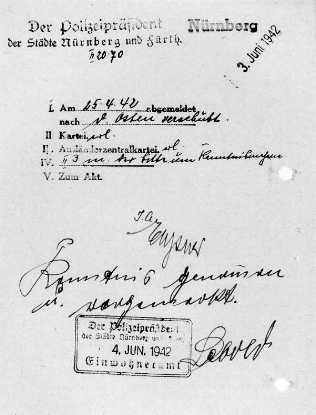 Der Polizeipräsident
Nürnberg
der Städte Nürnberg und Fürth.
3. Juni 1942
I. Am 25.4.42 abgemeldet
nach d. Osten
II Kartei, erl.
II. Ausländerzentralkartei, erl.
IV. II 3 m. der Bitte um Kenntnisnahme
V. Zum Akt.
I.A.
Kenntnis genommen
u. vorgemerkt.
Der Polizeipräsident
der Städte Nürnberg u.
4. JUN. 1942
Einwohneramt